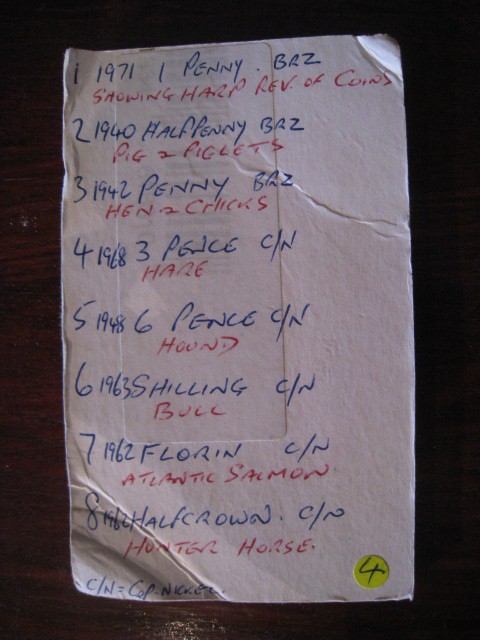 1 1971 1 PENNY. BRZ
SHOWING HARP REV. OF COINS
2 1940 HALFPENNY BRZ
PIG & PIGLETS
3 1942 PENNY BRZ
HEN & CHICKS
4 1968 3 PENCE C/N
HARE
5 1948 6 PENCE C/N
HOUND
6 1963 SHILLING C/N
BULL
7 1962 FLORIN C/N
ATLANTIC SALMON.
8 HALFCROWN. C/N
HUNTER HORSE.
C/N = COP-NICKEL.
4